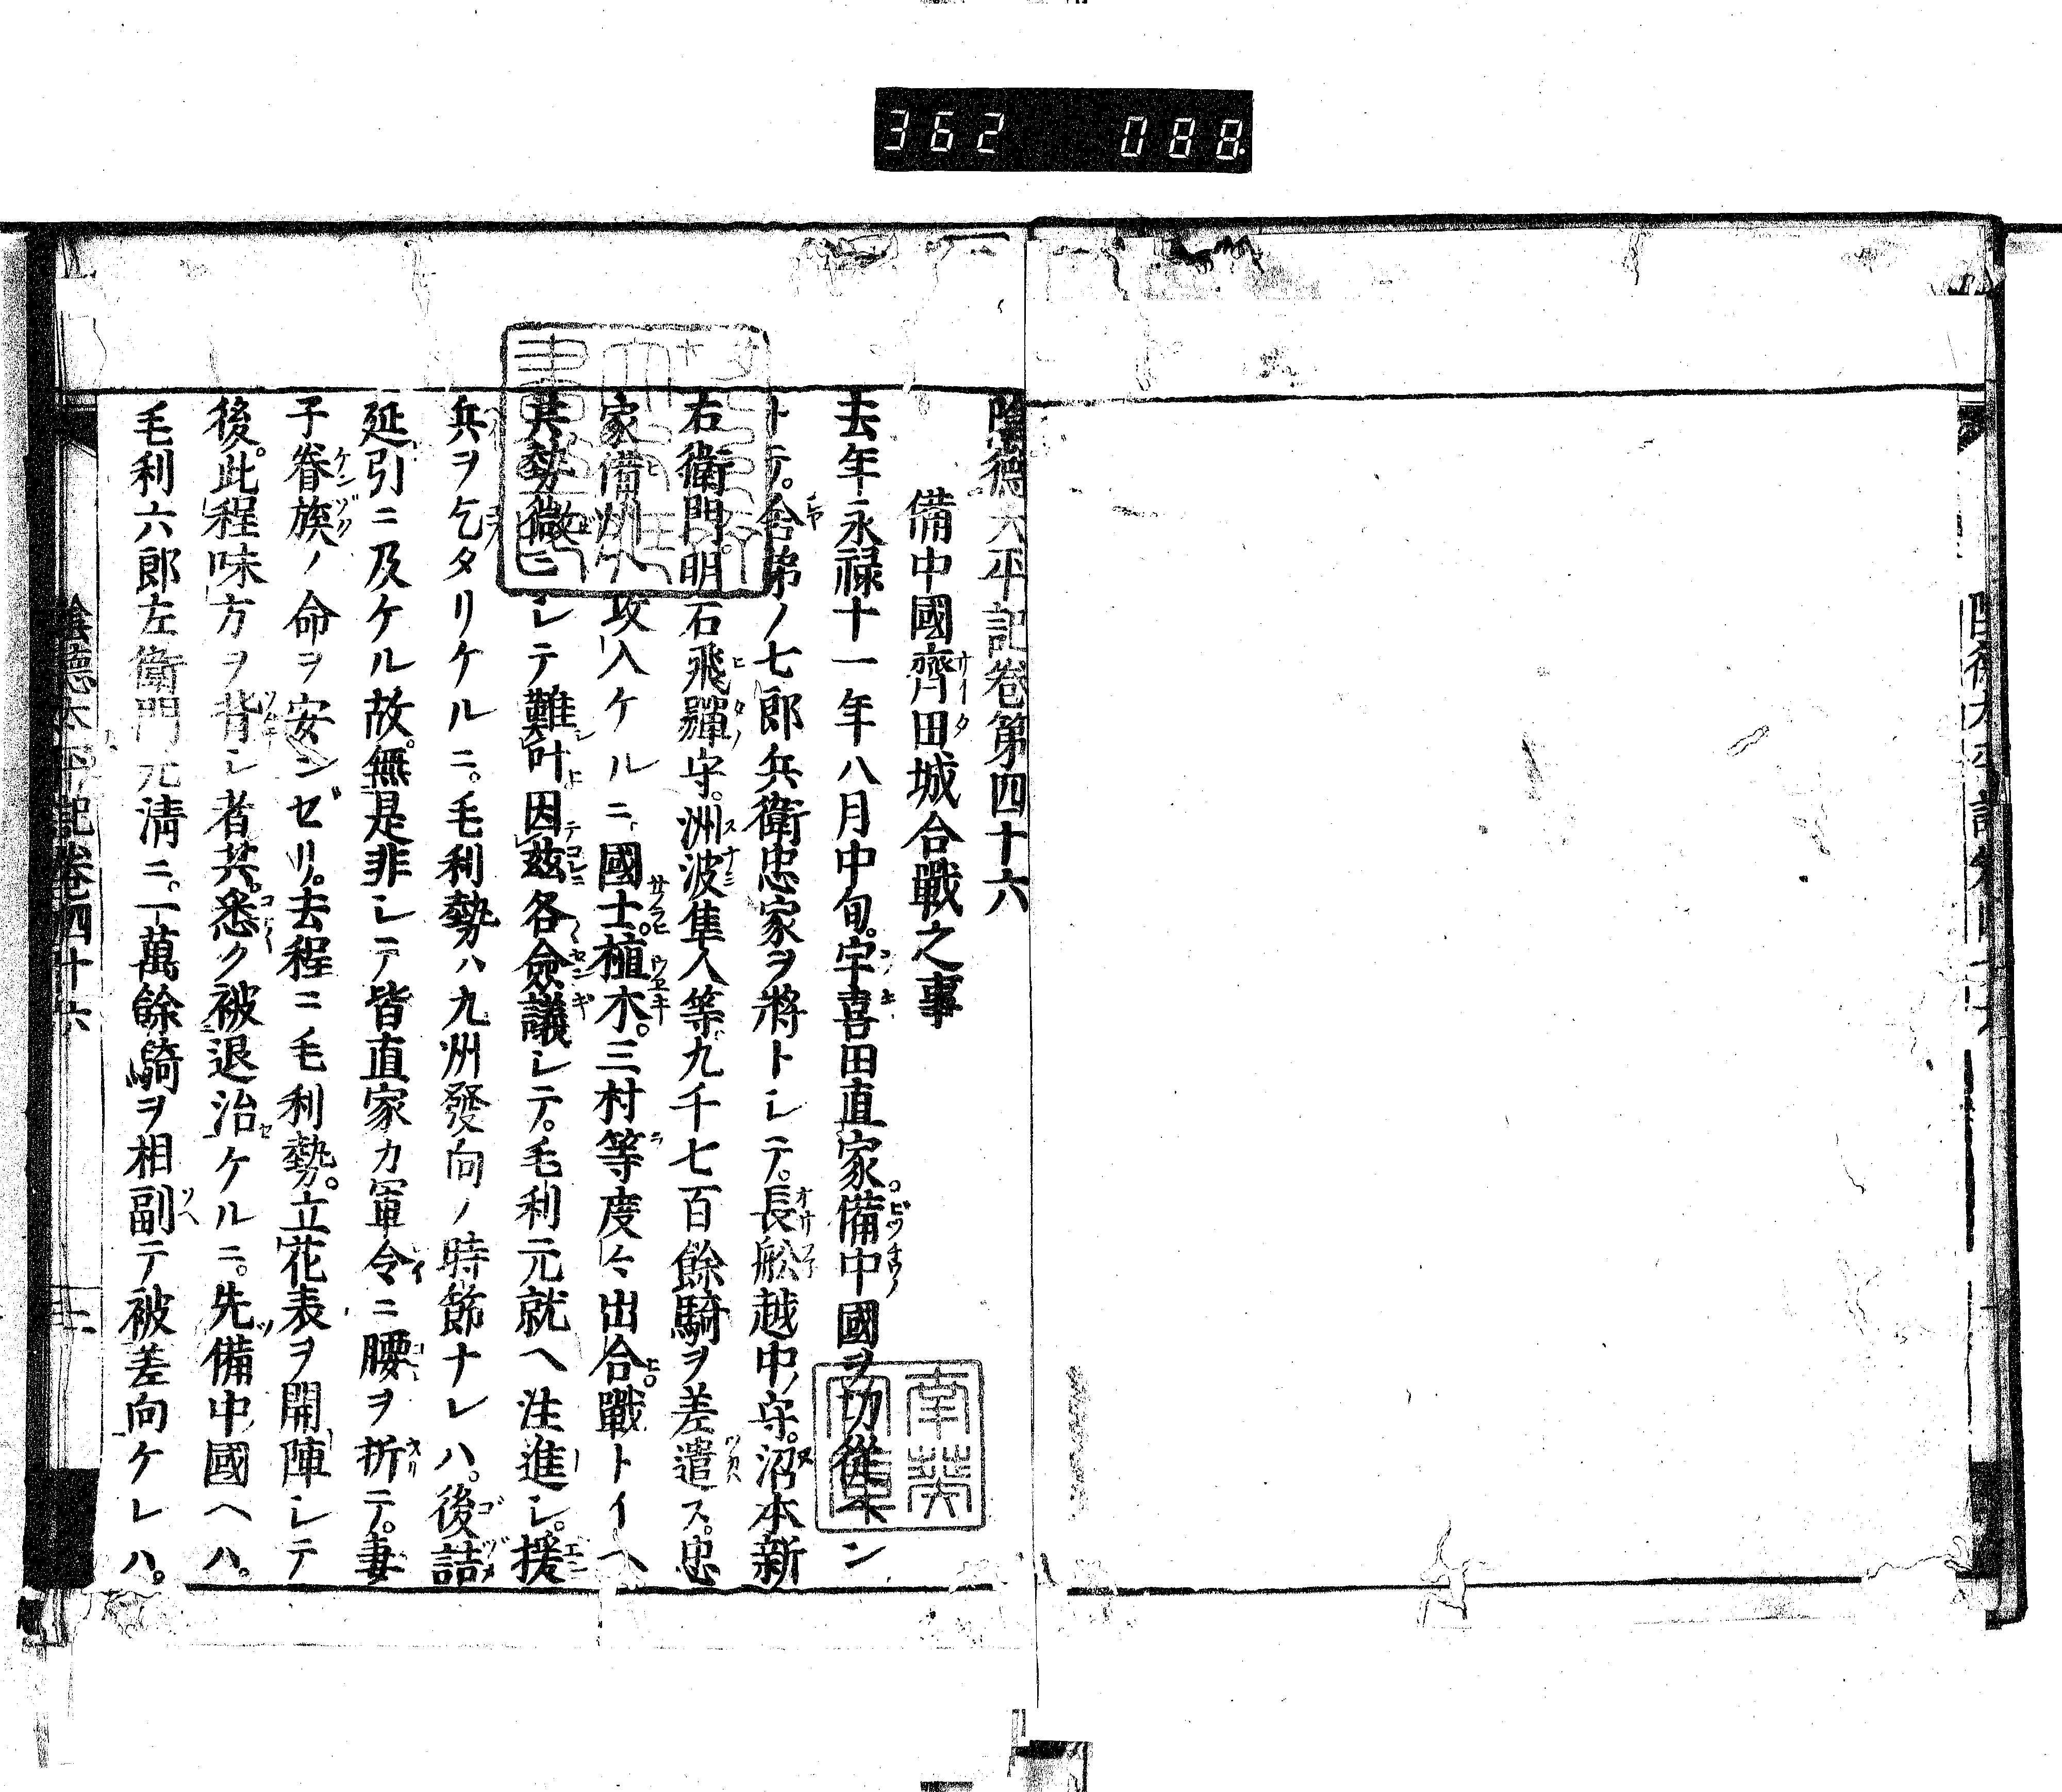 362 088
陰德太平記卷第四十六
備中國齊田城合戰之事
去年永禄十一年八月中旬。宇喜田直家。備中國ヲ切從ヘン
トテ。舎弟ノ七郎兵衛忠家ヲ將トシテ。長舩越中ノ守。沼本新
右衛門。明石飛驒ノ守。洲波隼人等九千七百餘騎ヲ差遣ス。忠
家備州ヘ攻入ケルニ國士。植木。三村等度々出合。戰トイヘ
其勢微ニシテ難叶因茲各僉議シテ。毛利元就ヘ注進シ。援
兵ヲ乞タリケルニ。毛利勢ハ九州發向ノ時節ナレハ。後詰
延引ニ及ケル故。無是非シテ皆直家カ軍令ニ腰ヲ折テ。妻
子眷族ノ命ヲ安ンゼリ。去程ニ毛利勢。立花表ヲ開陣シテ
後。此程味方ヲ背シ者共。悉ク被退治ケルニ。先備中國ヘハ。
毛利六郎左衛門元清ニ。一萬餘騎ヲ相副テ被差向ケレハ。
陰德太平記卷四十六